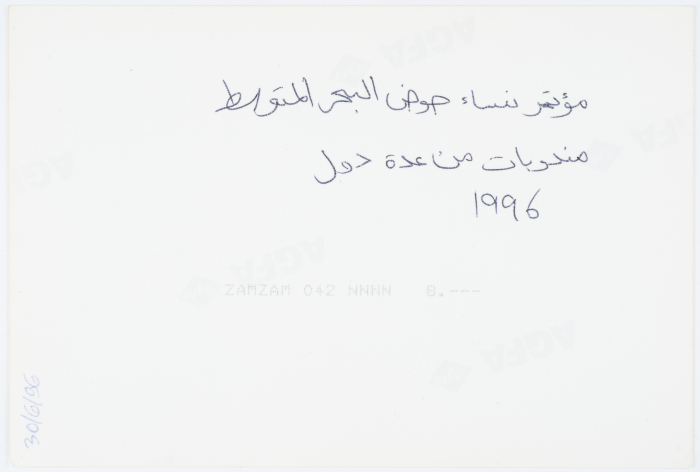 مؤتمر نساء حوض البحر المتوسط
مندوبات من عدة دول
1996
ZAMZAM 042 NNNN 8.---
30/6/96
AGFA
AGFA
AGFA
AGFA
AGFA